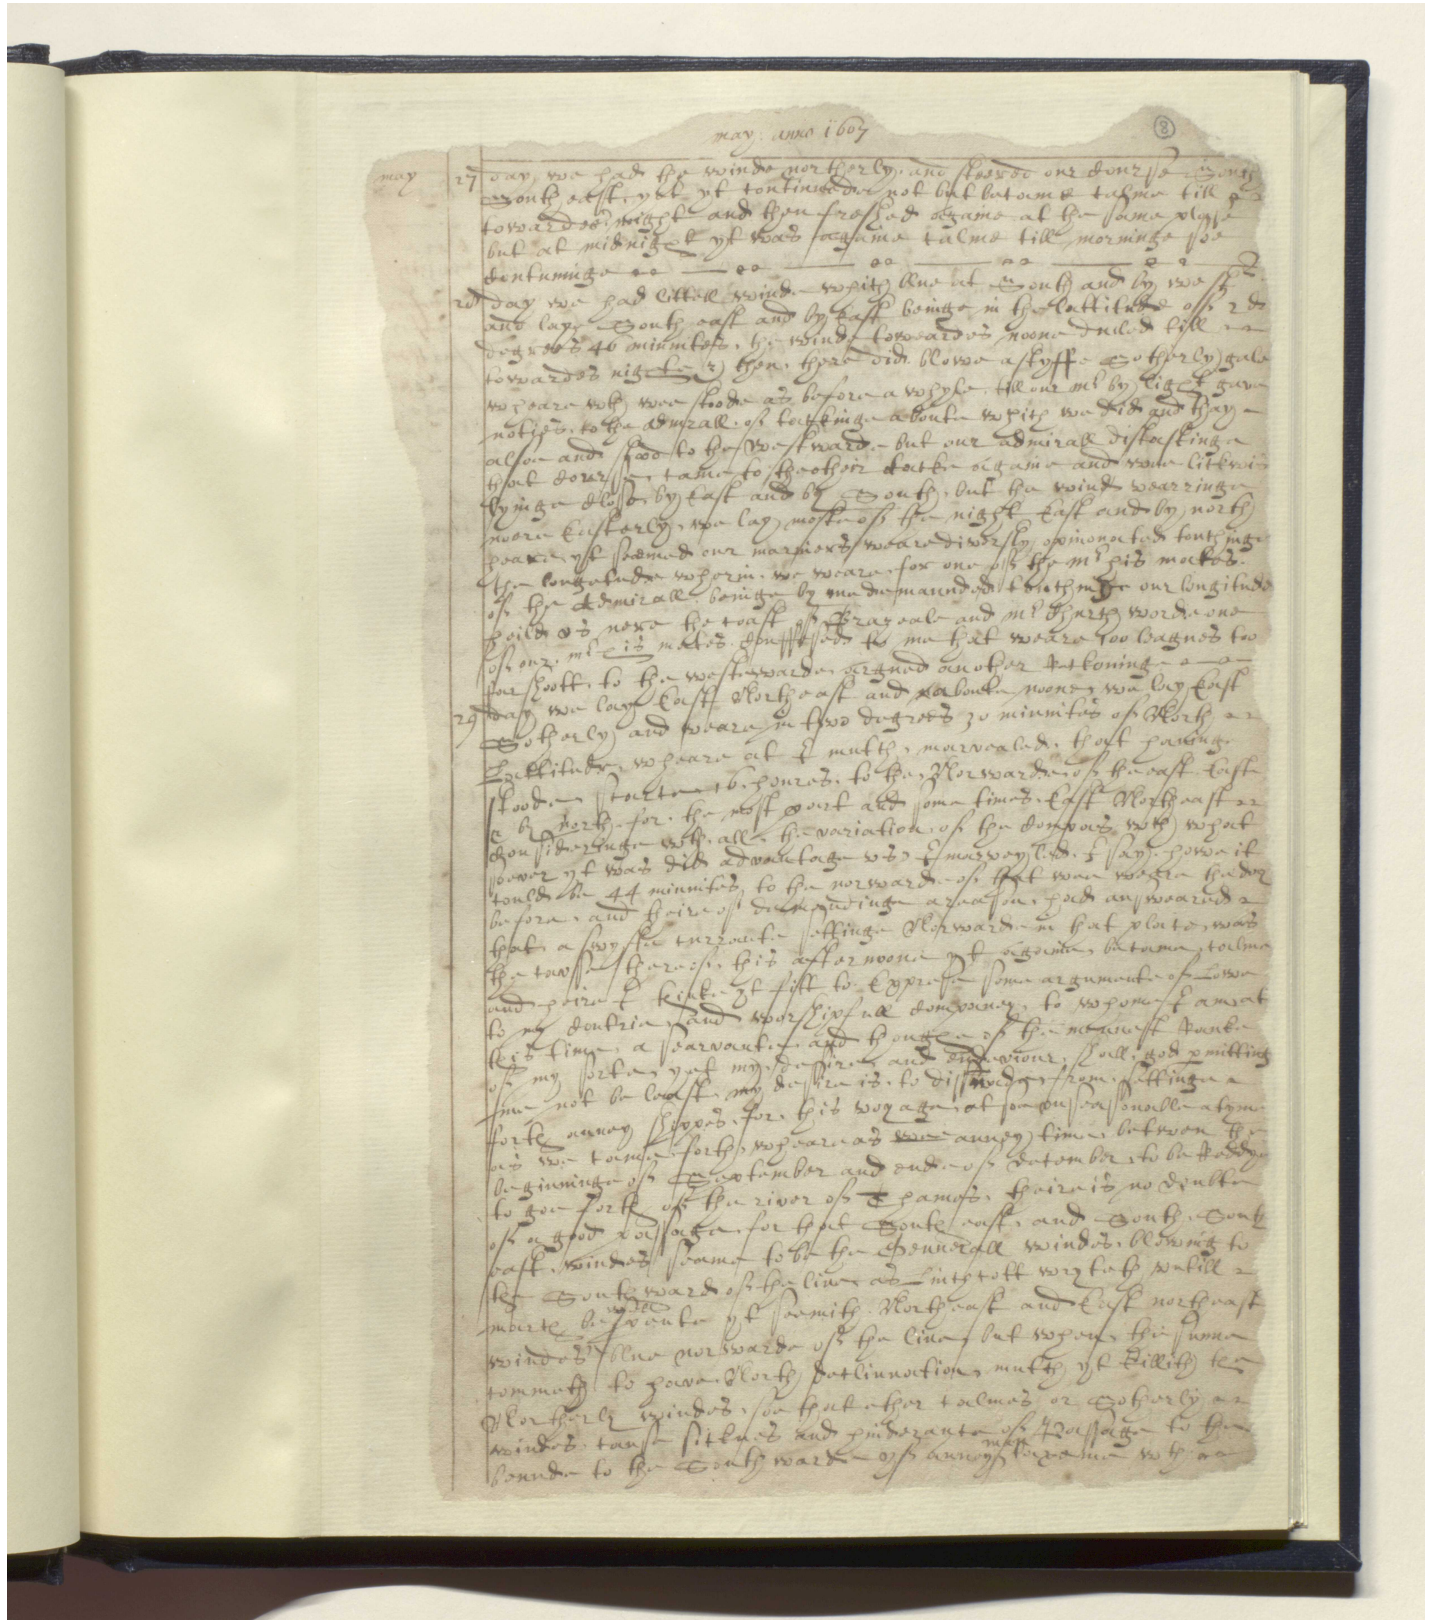 may anno 1607
8
may 27 day we had the winde northerly, and steered our Course South
South east, yet yt Continued not but became calme till
towardes night and then freshed againe at the same place
but at midnight yt was againe calme till morninge soe
Contuninge
28 day we had littell winde which blue at South and by west
and laye South east and by East beinge in the lattitude of 2 de
degrees 46 minnites, the winde towardes noone duled till
towardes nighte then, there did blowe a styffe Sotherly gale
wheare wth wee stoode as before a whyle till our mr by light gave
notis to the Admirall of tackinge aboute which we did and thay
alsoe and stood to the Westwarde but our admirall distastinge
that Course came to theother tacke againe and wee likwis
lyinge close by East and by South, but the winde vearringe
moere Easterly, we lay moste of the night East and by north
heare yt seemed our marriners weare diversly opinionated touthinge
the longetude wherin we weare for one of the mr his mates
of the Admirall beinge by me demaunded touthinge our longitude
heild us nere the coast of Brazeale and mr Churchworde one
of our mr his mates Confessed to me that weare 100 leagues too
far shoott, to the westewarde, argued another Reckoninge
29 day we laye East Northeast and aboute noone, we lay East
Sotherly and weare in two degrees 30 minnites of North
Lattitude, wheare at I mutch marvealed, that havinge
stoode, scarce 16 houres, to the Norwarde of the east East
& by north for the most part and some times East Northeast
Consideringe wth all the variation of the Compas wth what
soever yt was did advantage us, I marveyled I say howe it
could be 44 minnites to the norwarde of that wee weare the day
before, and theirof demandinge a reason, had answeared
that a swyfte currante settinge Norwarde in that place, was
the cawse thereof, this afternoone yt againe became calme
and heire I thinke yt fitt to Expresse some argumente of Love
to my Contrie, and worshipfull Companey, to whome I am at
this time, a searvante, and thoughe of the meanest Ranke
of my sorte, yet my desire and endeviour, shall god pmitting
me not be least, my desire is, to disswade, from settinge
forth anney shippes, for this voyage, at soe unseasonable a tyme
as we came forth, wheare as anney time betwen the
beginninge of September and ende of December, to be Reddy
to goe forth of the river of Thames, theire is no doubte
of a good passage, for that South east, and South South
east windes seame to be the Gennerall windes, blowing to
the Southward of the line, as Linchcott wryteth untill
march be spente yt seemith, Northeast and East northeast
windes blue norwarde of the line, but when the sunne
commeth to have North Declinnation, mutch yt killith the
Northerly windes, soe that ether calmes or Sotherly
windes, cause sicknes and hinderante of Passage to the
bounde to the Southwarde of anney wth